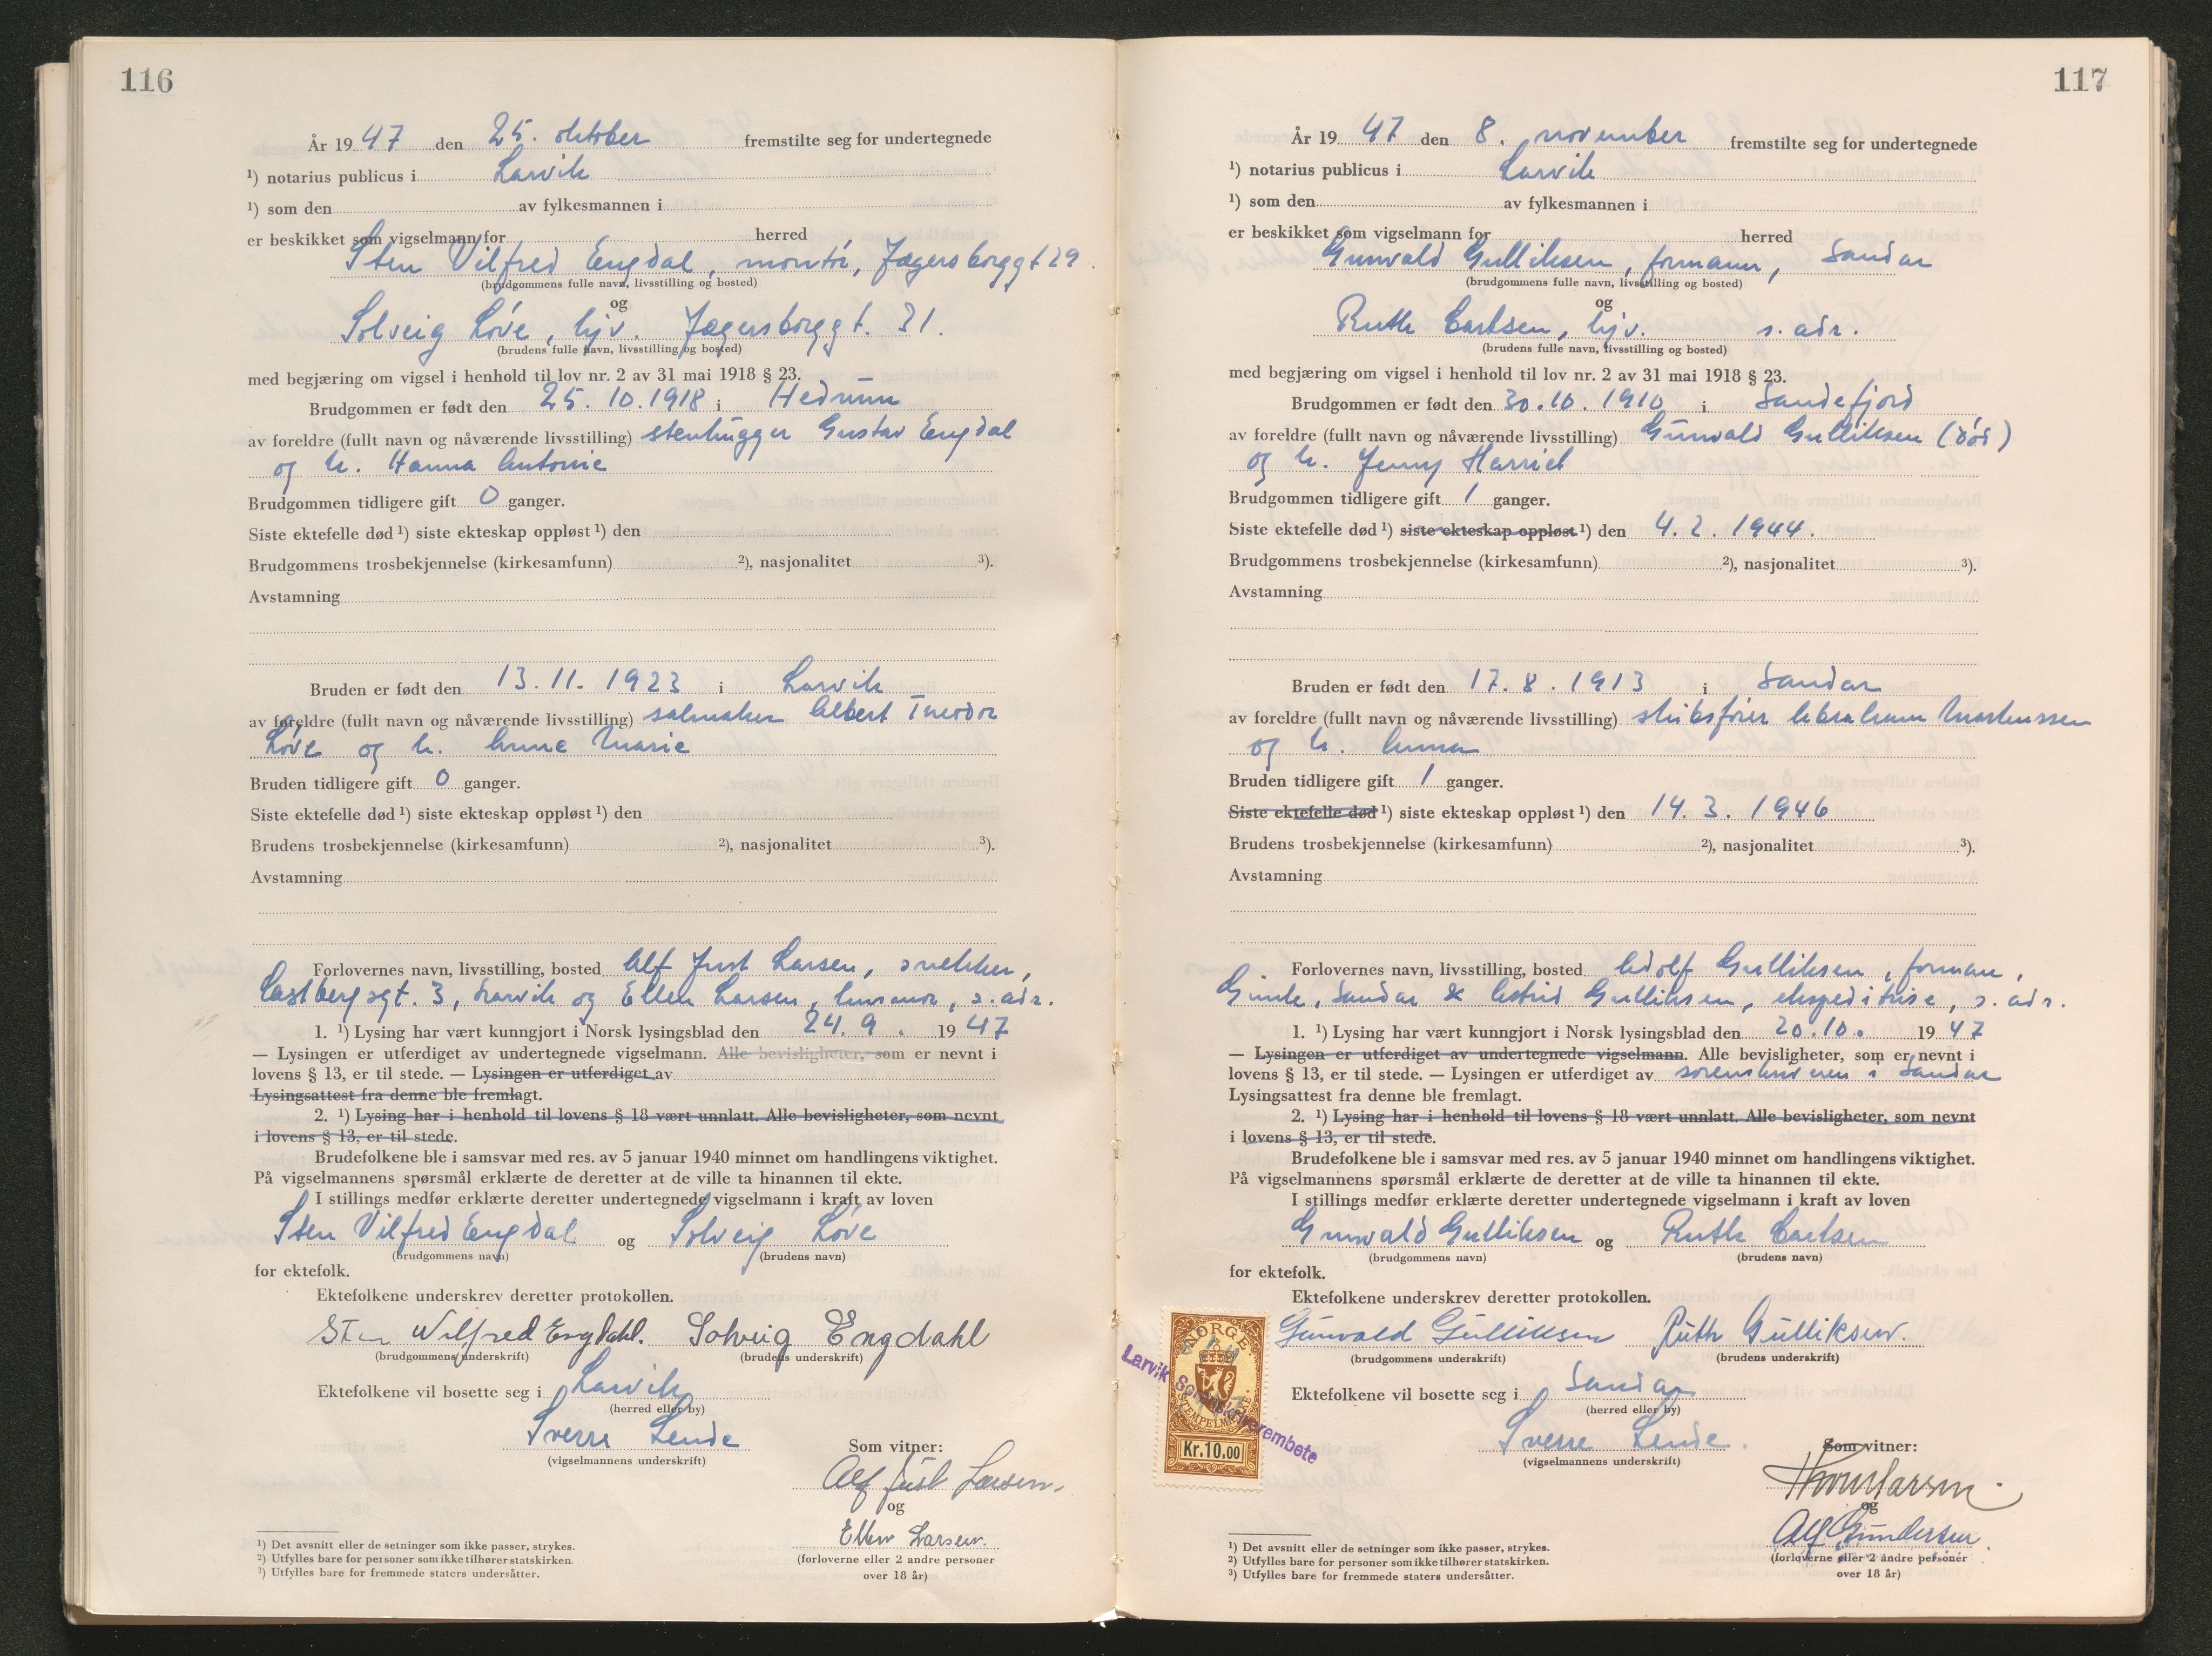 116
År 1947 den 25. oktober fremstilte seg for undertegnede
¹) notarius publicus i Larvik
¹) som den av fylkesmannen i
er beskikket som vigselmann for herred
Sten Vilfred Engdal, montør, Jægersborggt 29.
(brudgommens fulle navn, livsstilling og bosted)
og
Solveig Løve, hjv. Jægersborggt. 31.
(brudens fulle navn, livsstilling og bosted)
med begjæring om vigsel i henhold til lov nr. 2 av 31 mai 1918 § 23.
Brudgommen er født den 25.10.1918 i Hedrum
av foreldre (fullt navn og nåværende livsstilling) stenhugger Gustav Engdal
og h. Hanna Antonie
Brudgommen tidligere gift 0 ganger.
Siste ektefelle død ¹) siste ekteskap oppløst ¹) den
Brudgommens trosbekjennelse (kirkesamfunn) ²), nasjonalitet ³).
Avstamning
Bruden er født den 13.11.1923 i Larvik
av foreldre (fullt navn og nåværende livsstilling) salmaker Albert Teodor
Løve og h. Anne Marie
Bruden tidligere gift 0 ganger.
Siste ektefelle død ¹) siste ekteskap oppløst ¹) den
Brudens trosbekjennelse (kirkesamfunn) ²), nasjonalitet ³).
Avstamning
Forlovernes navn, livsstilling, bosted Alf Just Larsen, snekker,
Castbergsgt. 3, Larvik og Ellen Larsen, husmor, s. adr.
1. ¹) Lysing har vært kunngjort i Norsk lysingsblad den 24.9. 1947
— Lysingen er utferdiget av undertegnede vigselmann. Alle bevisligheter, som er nevnt i
lovens § 13, er til stede. — Lysingen er utferdiget av
Lysingsattest fra denne ble fremlagt.
2. ¹) Lysing har i henhold til lovens § 18 vært unnlatt. Alle bevisligheter, som nevnt
i lovens § 13, er til stede.
Brudefolkene ble i samsvar med res. av 5 januar 1940 minnet om handlingens viktighet.
På vigselmannens spørsmål erklærte de deretter at de ville ta hinannen til ekte.
I stillings medfør erklærte deretter undertegnede vigselmann i kraft av loven
Sten Vilfred Engdal og Solveig Løve
(brudgommens navn) (brudens navn)
for ektefolk.
Ektefolkene underskrev deretter protokollen.
Sten Wilfred Engdahl. Solveig Engdahl
(brudgommens underskrift) (brudens underskrift)
Ektefolkene vil bosette seg i Larvik
(herred eller by)
Sverre Lende
(vigselmannens underskrift)
Som vitner:
Alf Just Larsen.
og
Ellen Larsen.
(forloverne eller 2 andre personer
over 18 år)
¹) Det avsnitt eller de setninger som ikke passer, strykes.
²) Utfylles bare for personer som ikke tilhører statskirken.
³) Utfylles bare for fremmede staters undersåtter.
117
År 1947 den 8. november fremstilte seg for undertegnede
¹) notarius publicus i Larvik
¹) som den av fylkesmannen i
er beskikket som vigselmann for herred
Gunvald Gulliksen, formann, Sandar
(brudgommens fulle navn, livsstilling og bosted)
og
Ruth Carlsen, hjv. s. adr.
(brudens fulle navn, livsstilling og bosted)
med begjæring om vigsel i henhold til lov nr. 2 av 31 mai 1918 § 23.
Brudgommen er født den 30.10.1910 i Sandefjord
av foreldre (fullt navn og nåværende livsstilling) Gunvald Gulliksen (død)
og h. Jenny Harriet
Brudgommen tidligere gift 1 ganger.
Siste ektefelle død ¹) siste ekteskap oppløst ¹) den 4.2.1944.
Brudgommens trosbekjennelse (kirkesamfunn) ²), nasjonalitet ³).
Avstamning
Bruden er født den 17.8.1913 i Sandar
av foreldre (fullt navn og nåværende livsstilling) skibsfører Abraham Marthinussen
og h. Anna
Bruden tidligere gift 1 ganger.
Siste ektefelle død ¹) siste ekteskap oppløst ¹) den 14.3.1946
Brudens trosbekjennelse (kirkesamfunn) ²), nasjonalitet ³).
Avstamning
Forlovernes navn, livsstilling, bosted Adolf Gulliksen, formann,
Gimle, Sandar & Astrid Gulliksen, ekspeditrise, s. adr.
1. ¹) Lysing har vært kunngjort i Norsk lysingsblad den 20.10. 1947
— Lysingen er utferdiget av undertegnede vigselmann. Alle bevisligheter, som er nevnt i
lovens § 13, er til stede. — Lysingen er utferdiget av sorenskriveren i Sandar
Lysingsattest fra denne ble fremlagt.
2. ¹) Lysing har i henhold til lovens § 18 vært unnlatt. Alle bevisligheter, som nevnt
i lovens § 13, er til stede.
Brudefolkene ble i samsvar med res. av 5 januar 1940 minnet om handlingens viktighet.
På vigselmannens spørsmål erklærte de deretter at de ville ta hinannen til ekte.
I stillings medfør erklærte deretter undertegnede vigselmann i kraft av loven
Gunvald Gulliksen og Ruth Carlsen
(brudgommens navn) (brudens navn)
for ektefolk.
Ektefolkene underskrev deretter protokollen.
Gunvald Gulliksen Ruth Gulliksen.
(brudgommens underskrift) (brudens underskrift)
Ektefolkene vil bosette seg i Sandar
(herred eller by)
Sverre Lende.
(vigselmannens underskrift)
NORGE
STEMPELMERKE
Kr. 10.00
Larvik Sorenskriverembete
Som vitner:
og
Alf Gundersen
(forloverne eller 2 andre personer
over 18 år)
¹) Det avsnitt eller de setninger som ikke passer, strykes.
²) Utfylles bare for personer som ikke tilhører statskirken.
³) Utfylles bare for fremmede staters undersåtter.